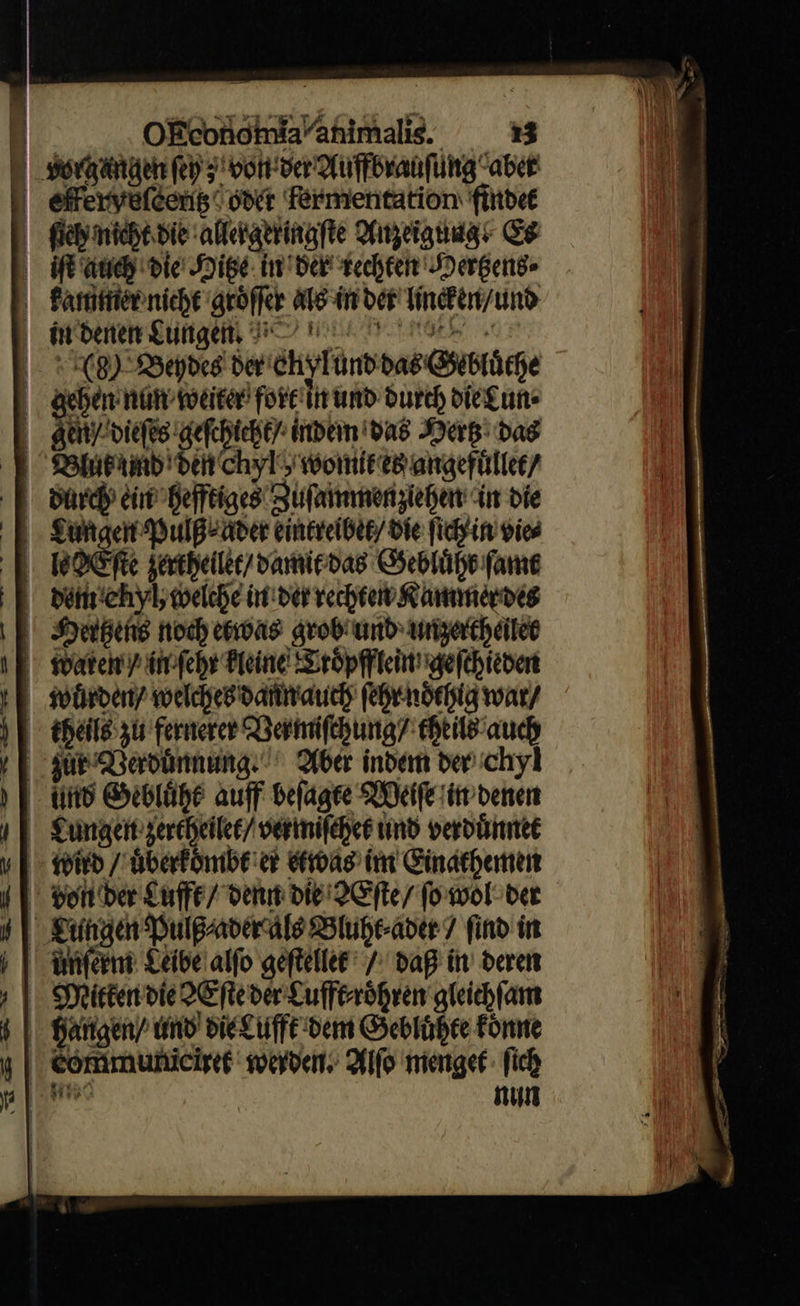 OEconomia animalis. 13
vorgangen ſey; von der Auffbrauſung aber
efferveſcentz oder fermentation findet
ſich nicht die allergeringſte Anzeigung. Es
iſt auch die Hitze in der rechten Hertzens-
kammer nicht groͤſſer als in der lincken/ und
in denen Lungen.
(8) Beydes der chyl und das Gebluͤthe
gehen nun weiter fort in und durch die Lun-
gen/ dieſes geſchicht/ indem das Hertz das
Blut und den chyl, womit es angefuͤllet/
durch ein hefftiges Zuſammenziehen in die
Lungen Pulß-ader eintreibet/ die ſich in vie-
le Æſte zertheilet/ damit das Gebluͤht ſamt
dem chyl, welche in der rechten Kammer des
Hertzens noch etwas grob und unzertheilet
waren/ in ſehr kleine Troͤpfflein geſchieden
wuͤrden/ welches dann auch ſehr noͤthig war/
theils zu fernerer Vermiſchung/ theils auch
zur Verduͤnnung. Aber indem der chyl
und Gebluͤht auff beſagte Weiſe in denen
Lungen zertheilet/ vermiſchet und verduͤnnet
wird/ uͤberkoͤmbt er etwas im Einathemen
von der Lufft/ denn die Æſte/ ſo wol der
Lungen Pulß-ader als Bluht-ader/ ſind in
unſerm Leibe alſo geſtellet/ daß in deren
Mitten die Æſte der Lufft-roͤhren gleichſam
hangen/ und die Lufft dem Gebluͤhte koͤnne
communiciret werden. Alſo menget ſich
nun